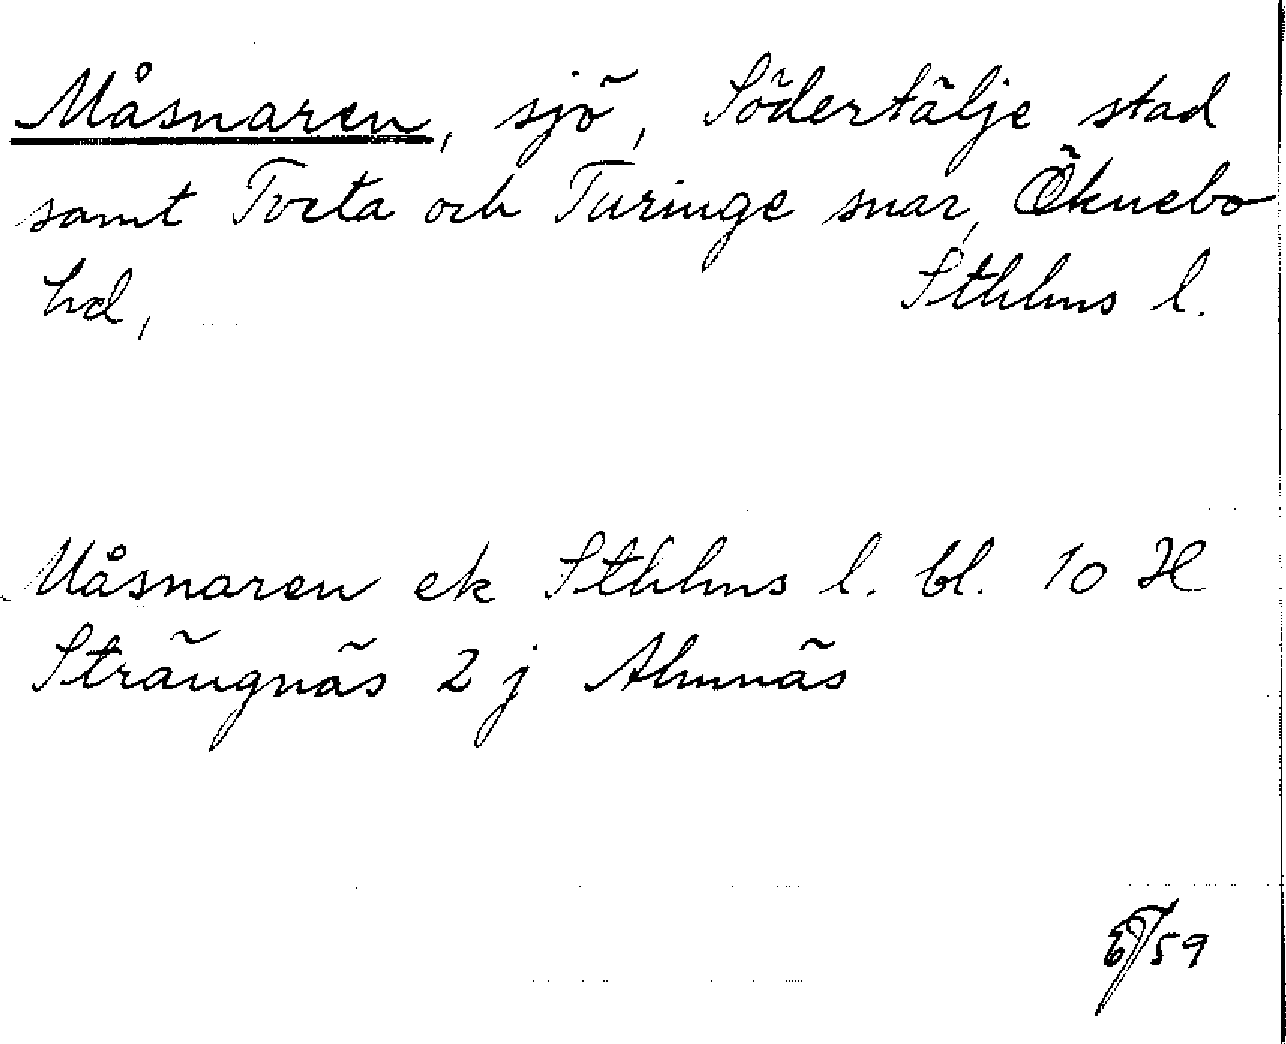 Måsnaren, sjö, Södertälje stad
samt Tveta och Turinge snar, Öknebo
hd, Sthlms l.
Måsnaren ek Sthlms l. bl. 10 H
Strängnäs 2 j Almnäs
59